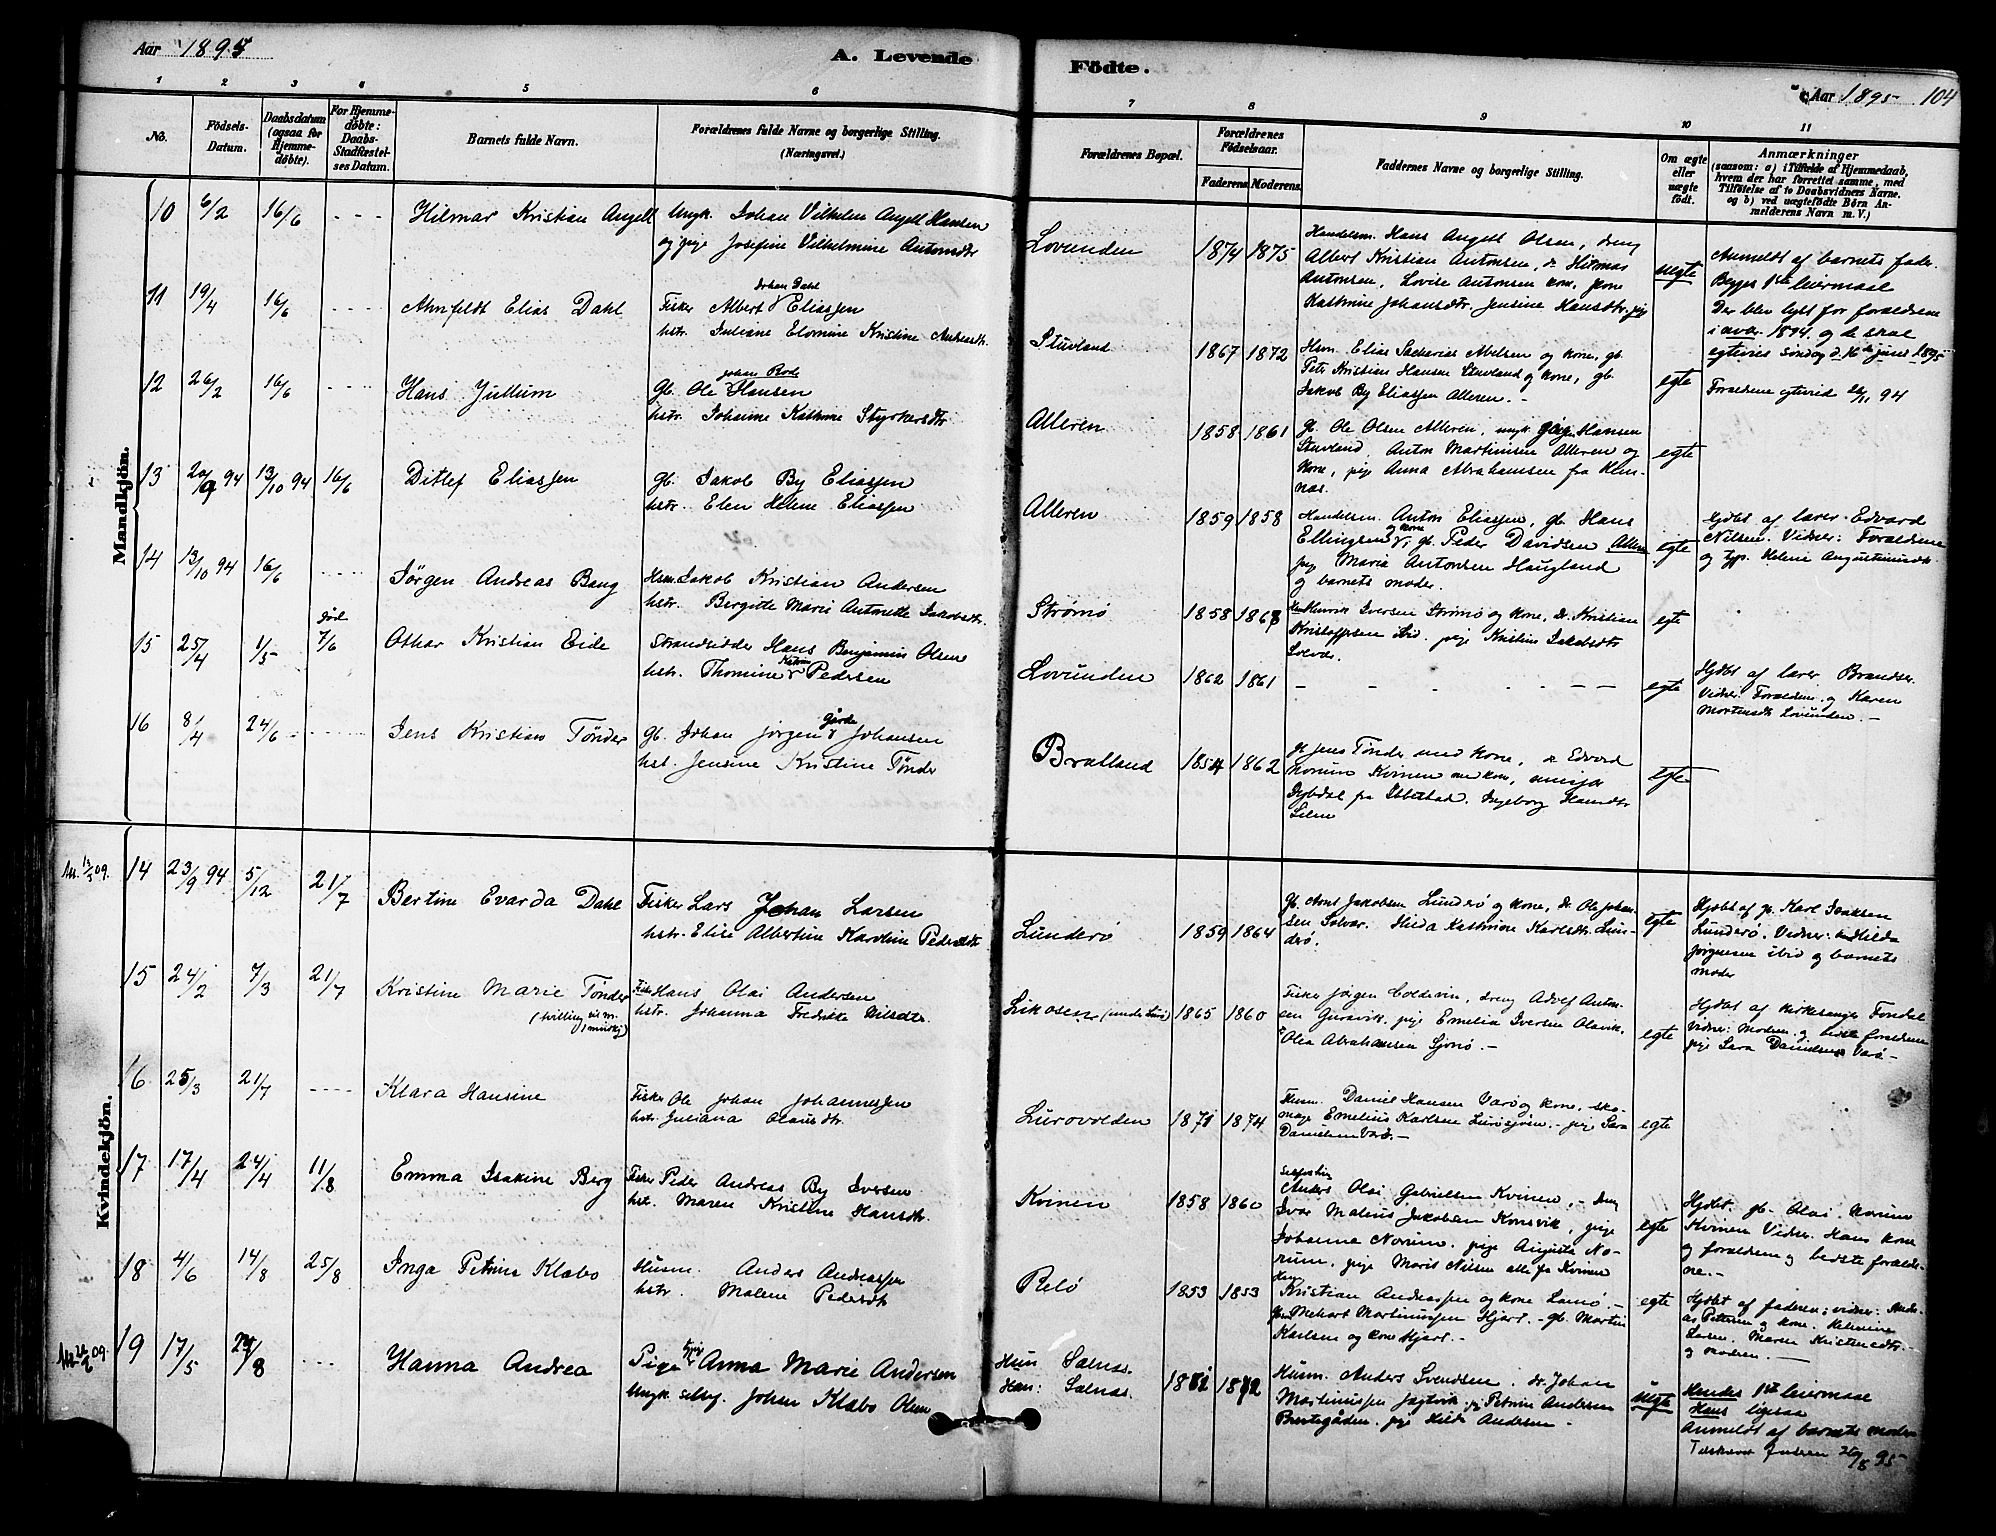 Aar 1895
A. Levende
Födte.
Aar 1895 104
1 2 3 4 5 6
7 8 9 10 11
No.
Födsels-
Datum.
Daabsdatum
(ogsaa for
Hjemme-
döbte).
For Hjemme-
döbte:
Daabs-
Stadfæstel-
ses Datum.
Barnets fulde Navn.
Forældrenes fulde Navne og borgerlige Stilling.
(Næringsvei.)
Forældrenes Bopæl.
Forældrenes
Födselsaar.
Faderens. Moderens.
Faddernes Navne og borgerlige Stilling.
Om ægte
eller
uægte
födt.
Anmærkninger
(saasom: a) i Tilfælde af Hjemmedaab,
hvem der har forrettet samme, med
Tilföielse af to Daabsvidners Navne.
og b) ved uægtefödte Börn An-
melderens Navn m. V.)
Mandkjön.
10 6/2 16/6 Hilmar Kristian Angell
Ungk. Johan Vilhelm Angell Hansen
og pige Josefine Vilhelmine Antonsdtr
Lovunden 1874 1875
Handelsm. Hans Angell Olsen, dreng
Albert Kristian Antonsen, dr. Hilmar
Antonsen, Lovise Antonsen kone, kone
Kathrine Johansdtr. Jensine Hansdtr. pige
uegte
Anmeldt af barnets fader.
Begges 1ste leiermaal
Der blev lyst for forældrene
i 1894 og de skal
egtevies söndag d. 16de juni 1895
11 19/4 16/6 Ahnfeldt Elias Dahl
Johan Dahl
Fisker Albert Eliassen
hstr. Juliane Elomine Kristine Andreasdtr.
Stuvland 1867 1872
Hsm. Elias Sakarias Abelsen og kone, gb.
Petr Kristian Hansen Stuvland og kone, gb.
Jakob By Eliassen Alleren.
egte
Forældrene egteviet 94
12 26/2 16/6 Hans Jullum
Johan Bode
gb. Ole Hansen
hstr. Johanne Kathrine Styrkersdtr
Alleren 1858 1861
gb. Ole Olsen Alleren, ungk. Hansen
Stuvland, Anton Martinusen Alleren og
kone, pige Anna Abrahamsen fra Hem-
næs.
egte
13 20/9 94 13/10 94 16/6 Ditlef Eliassen
gb. Jakob By Eliassen
hstr. Elen Helene Eliassen
Alleren 1859 1858
Handelsm. Anton Eliassen, gb. Hans
og kone
Ellingsen, gb. Peder Davidsen Alleren
pig Marie Antonsen Haugland
og barnets moder.
egte
Hjdbt af lærer Edvard
Nilsen. Vidner: Forældrene
og Helene Augustinusdtr.
14 13/10 94 16/6 Jörgen Andreas Bang
Hsm. Jakob Kristian Andersen
hstr. Bergitte Marie Antonette Jakobsdtr.
Strömö 1858 1868
Henrik Iversen Strömö og kone, dr. Kristian
Kristoffersen ibid. pige Kristine Jakobsdtr
Solvær.
egte
död
15 25/4 1/5 7/6 Othar Kristian Eide
Strandsidder Hans Benjamin Olsen
Katrine
hstr. Thomine Pedersen
Lovunden 1862 1861
egte
Hjdbt af lærer Brandser.
Vidner: Forældrene og Karen
Mortensdtr Lovunden.
16 8/4 24/6 Jens Kristian Tönder
Gårde
gb. Johan Jörgen Johansen
hst. Jensine Kristine Tönder
Bratland 1854 1862
gb Jens Tönder med kone, dr Edvard
Norum Kvinen med kone,
Dybdal fra Ibbestad. Ingeborg Hansdtr
Selen
egte
Kvindekjön.
09.
14 23/9 94 5/12 21/7 Bertine Evarda Dahl
Fisker Lars Johan Larsen
hstr. Elise Albertine Karoline Pedersdtr
Lunderö 1859 1864
gb. Arnt Jakobsen Lunderö og kone, dr. Ole Johan-
sen Solvær. Hilda Kathrine Karlsdtr. Lun-
derö.
egte
Hjdbt af gb. Karl Isaksen
Lunderö. Vidner: Hilda
Jörgensen ibid og barnets
moder
15 24/2 7/3 21/7 Kristine Marie Tönder
(tvilling
Fisker Hans Olai Andersen
hstr. Johanna Fredrikke Nilsdtr.
Likosen (under Lurö) 1865 1860
Fisker Jörgen Coldevin, dreng Adolf Anton-
sen Gursvik, pige Emelia Iversen Olavik.
Olea Abrahamsen Sjonö.
egte
Hjdbt af kirkesanger Fondal
vidner: Modren og forældrene
pige Sara Danielsen Varö
16 25/3 21/7 Klara Hansine
Fisker Ole Johan Johannessen
hstr. Juliana Olausdtr.
Lurovolden 1871 1874
Husm. Daniel Hansen Varö og kone, sko-
mag. Emelius Karlsen Lurösjöen. pige Sara
Danielsen Varö.
egte
17 17/4 24/4 11/8 Emma Isakine Berg
Fisker Peder Andreas By Iversen
hst. Maren Kristine Hansdtr.
Kvinen 1858 1860
Anders Olai Gabrielsen Kvinen, dreng
Ivar Malius Jakobsen Konsvik, pige
Johanna Norum. pige Augusta No-
rum, pige Marit Nilsen alle fra Kvinen
egte
Hjdbt. gb. Olai Norum
Kvinen Vidner. Hans kone
og forældrene og bedste foræld-
ne.
18 4/6 14/8 25/8 Inga Petrine Klæbo
Husm. Anders Andreassen
hstr. Malene Pedersdtr
Relö 1853 1853
Kristian Andreassen og kone Lamö.
Mekart Martinussen Hjart. gb. Martin
Karlsen og kone Hjart.
egte
Hjdbt af faderen; vidner: Andre-
as Petersen og kone. Helmine
Larsen. Maren Kristensdtr.
og modren.
09.
19 17/5 Hanna Andrea
Pige Anna Marie Andersen
Ungk. selvf. Johan Klæbo Olsen
Hun Selnæs.
Han: Selnæs. 1872
Husm. Anders Svendsen. dr. Johan
Martinussen Jægtvik. pg Petrine Andersen
Brustgården. pige Hilda Andersen
uegte
Hendes 1ste leiermaal
Hans ligesaa
Anmeldt af barnets moder
95